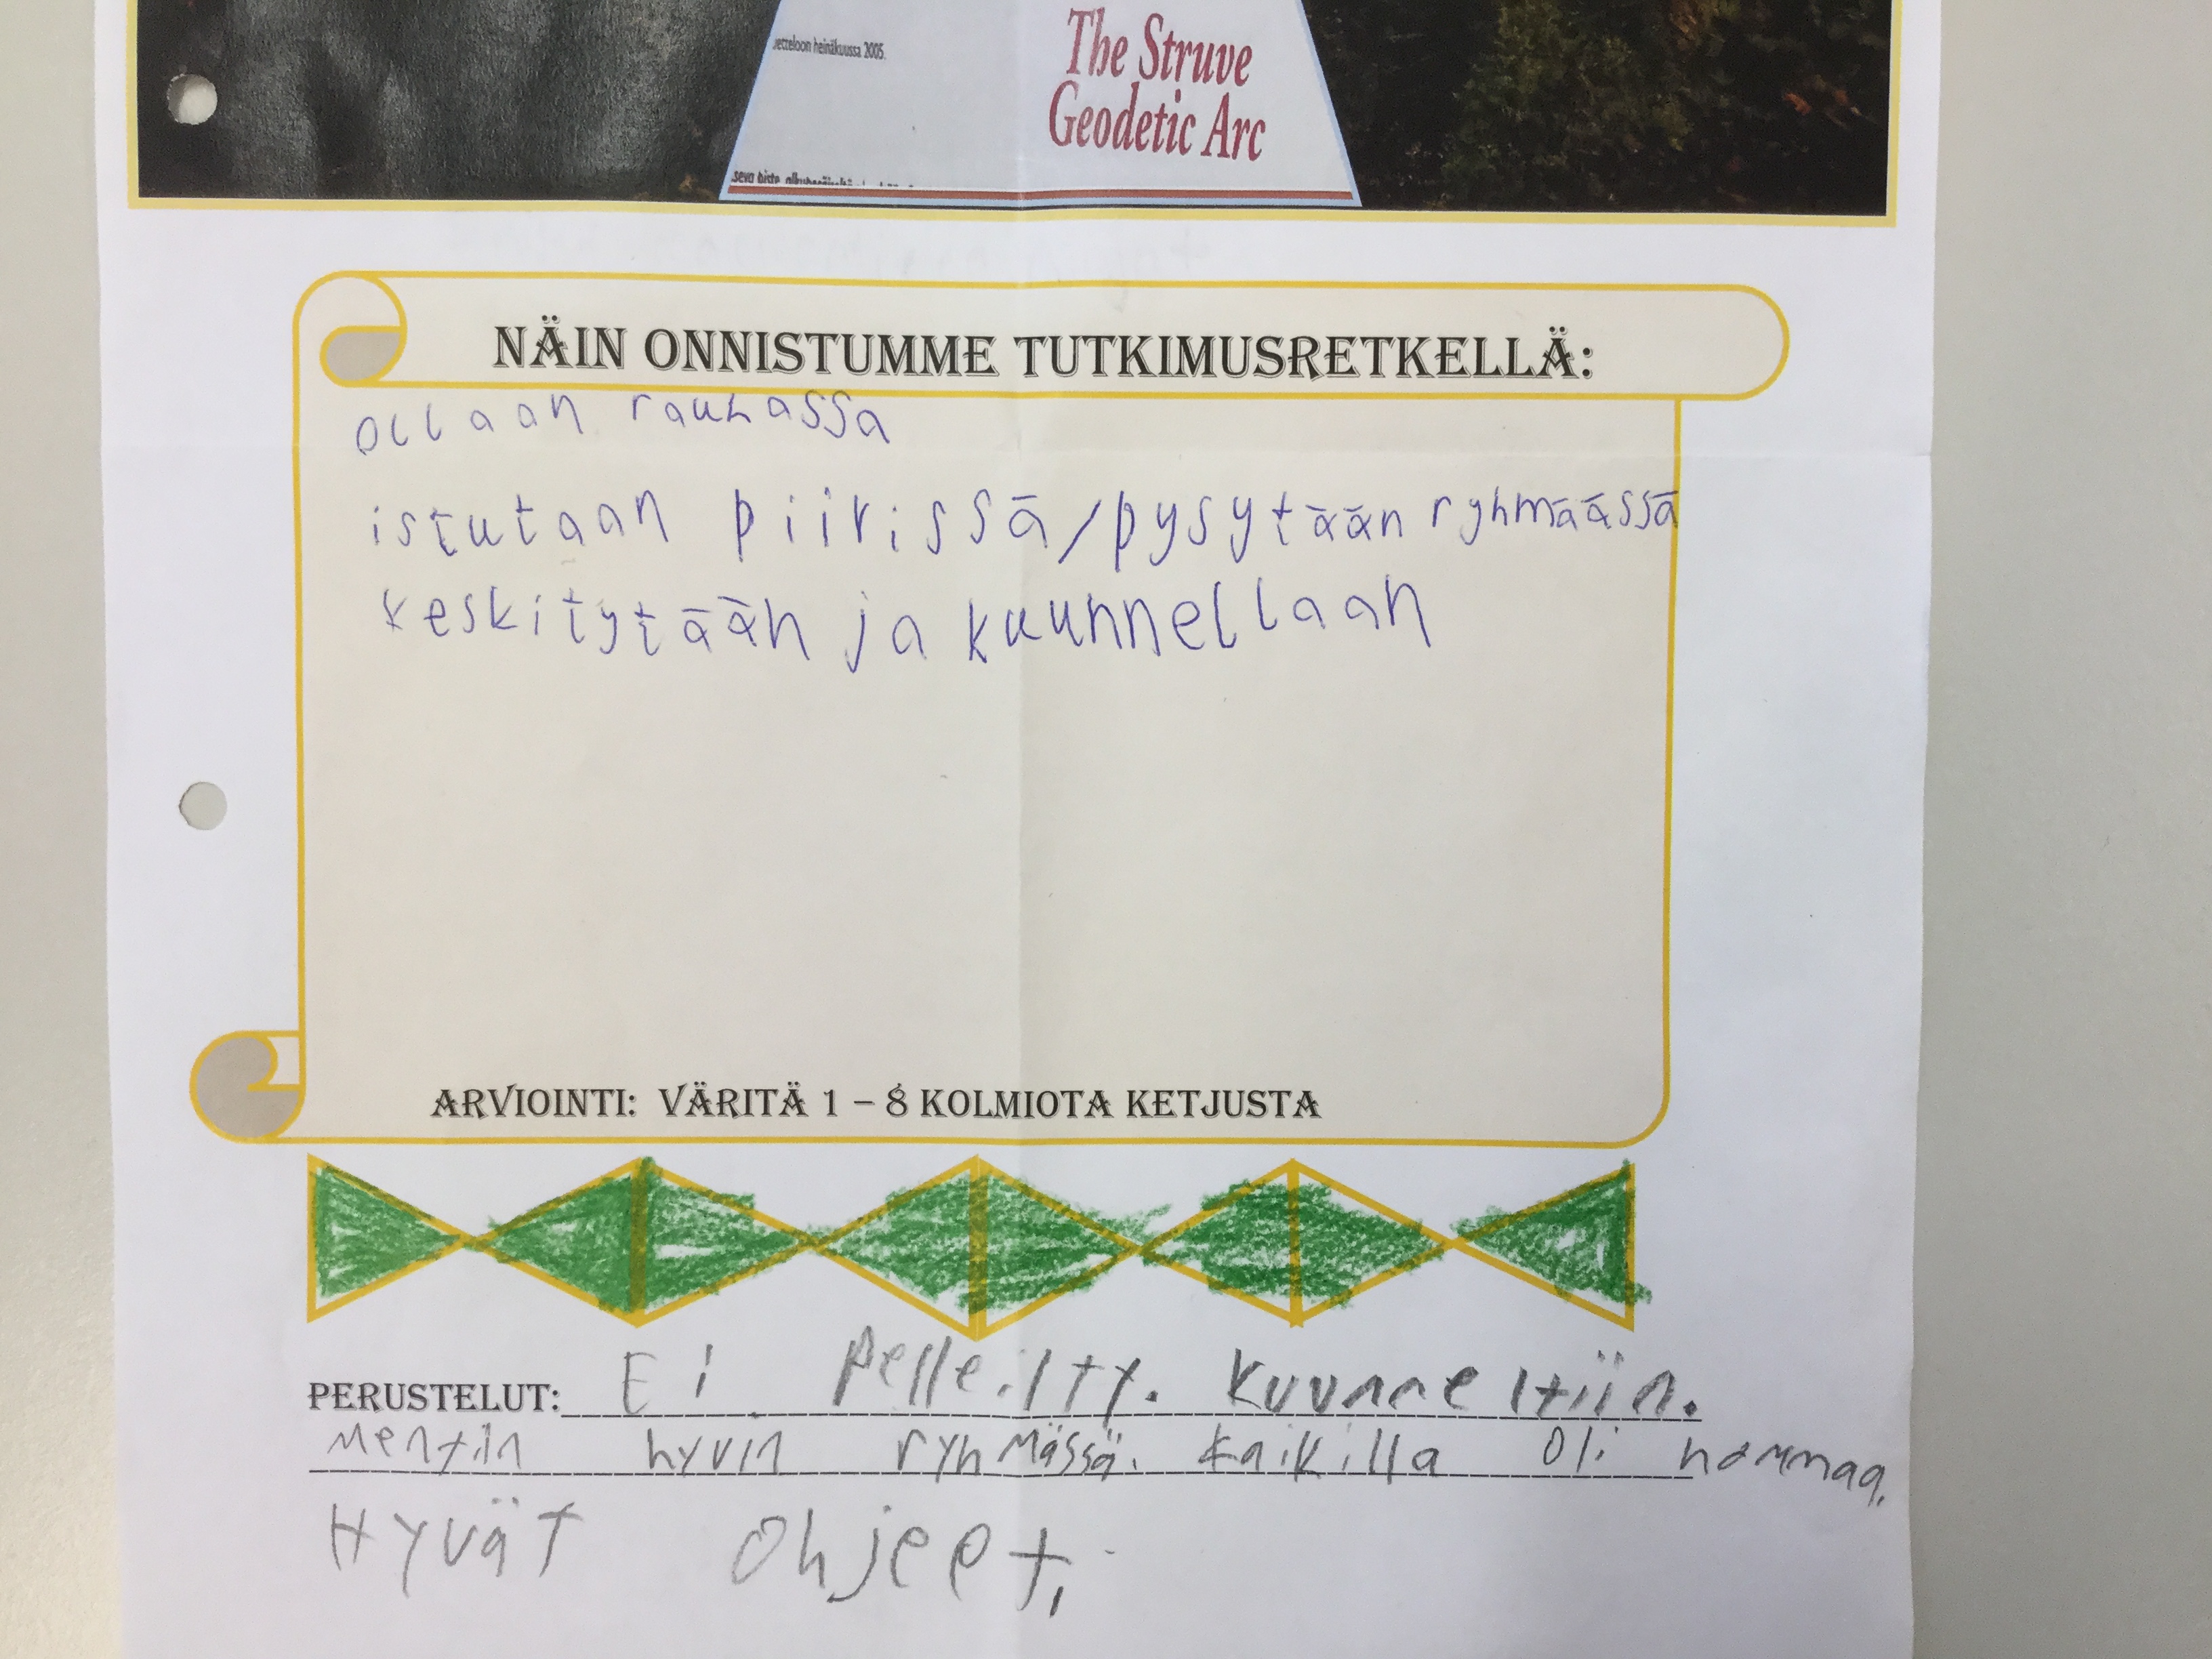 The Struve
Geodetic Arc
heinäkuussa 2005.
NÄIN ONNISTUMME TUTKIMUSRETKELLÄ:
ollaan rauhassa
istutaan piirissä/pysytään ryhmäässä
keskitytään ja kuunnellaan
ARVIOINTI: VÄRITÄ 1 – 8 KOLMIOTA KETJUSTA
PERUSTELUT: Ei Pelleilty. Kuunneltiin.
Mentiin hyvin ryhmässä. Kaikilla oli hommaa.
Hyvät Ohjeet.